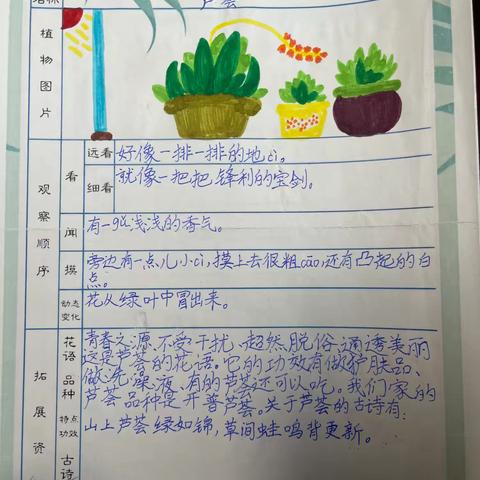 名称 芦荟
植物图片
观察顺序
看
远看 好像一排一排的地cì。
细看 就像一把把锋利的宝剑。
闻 有一股浅浅的香气。
摸 旁边有一点儿小cì,摸上去很粗cāo,还有凸起的白
点。
动态变化 花从绿叶中冒出来。
拓展资
花语 品种 特点功效 古诗
青春之源、不受干扰、超然脱俗、通透美丽
这是芦荟的花语。它的功效有做护肤品、
做洗澡液、有的芦荟还可以吃。我们家的
芦荟品种是开普芦荟。关于芦荟的古诗有:
山上芦荟绿如锦,草间蛙鸣背更新。